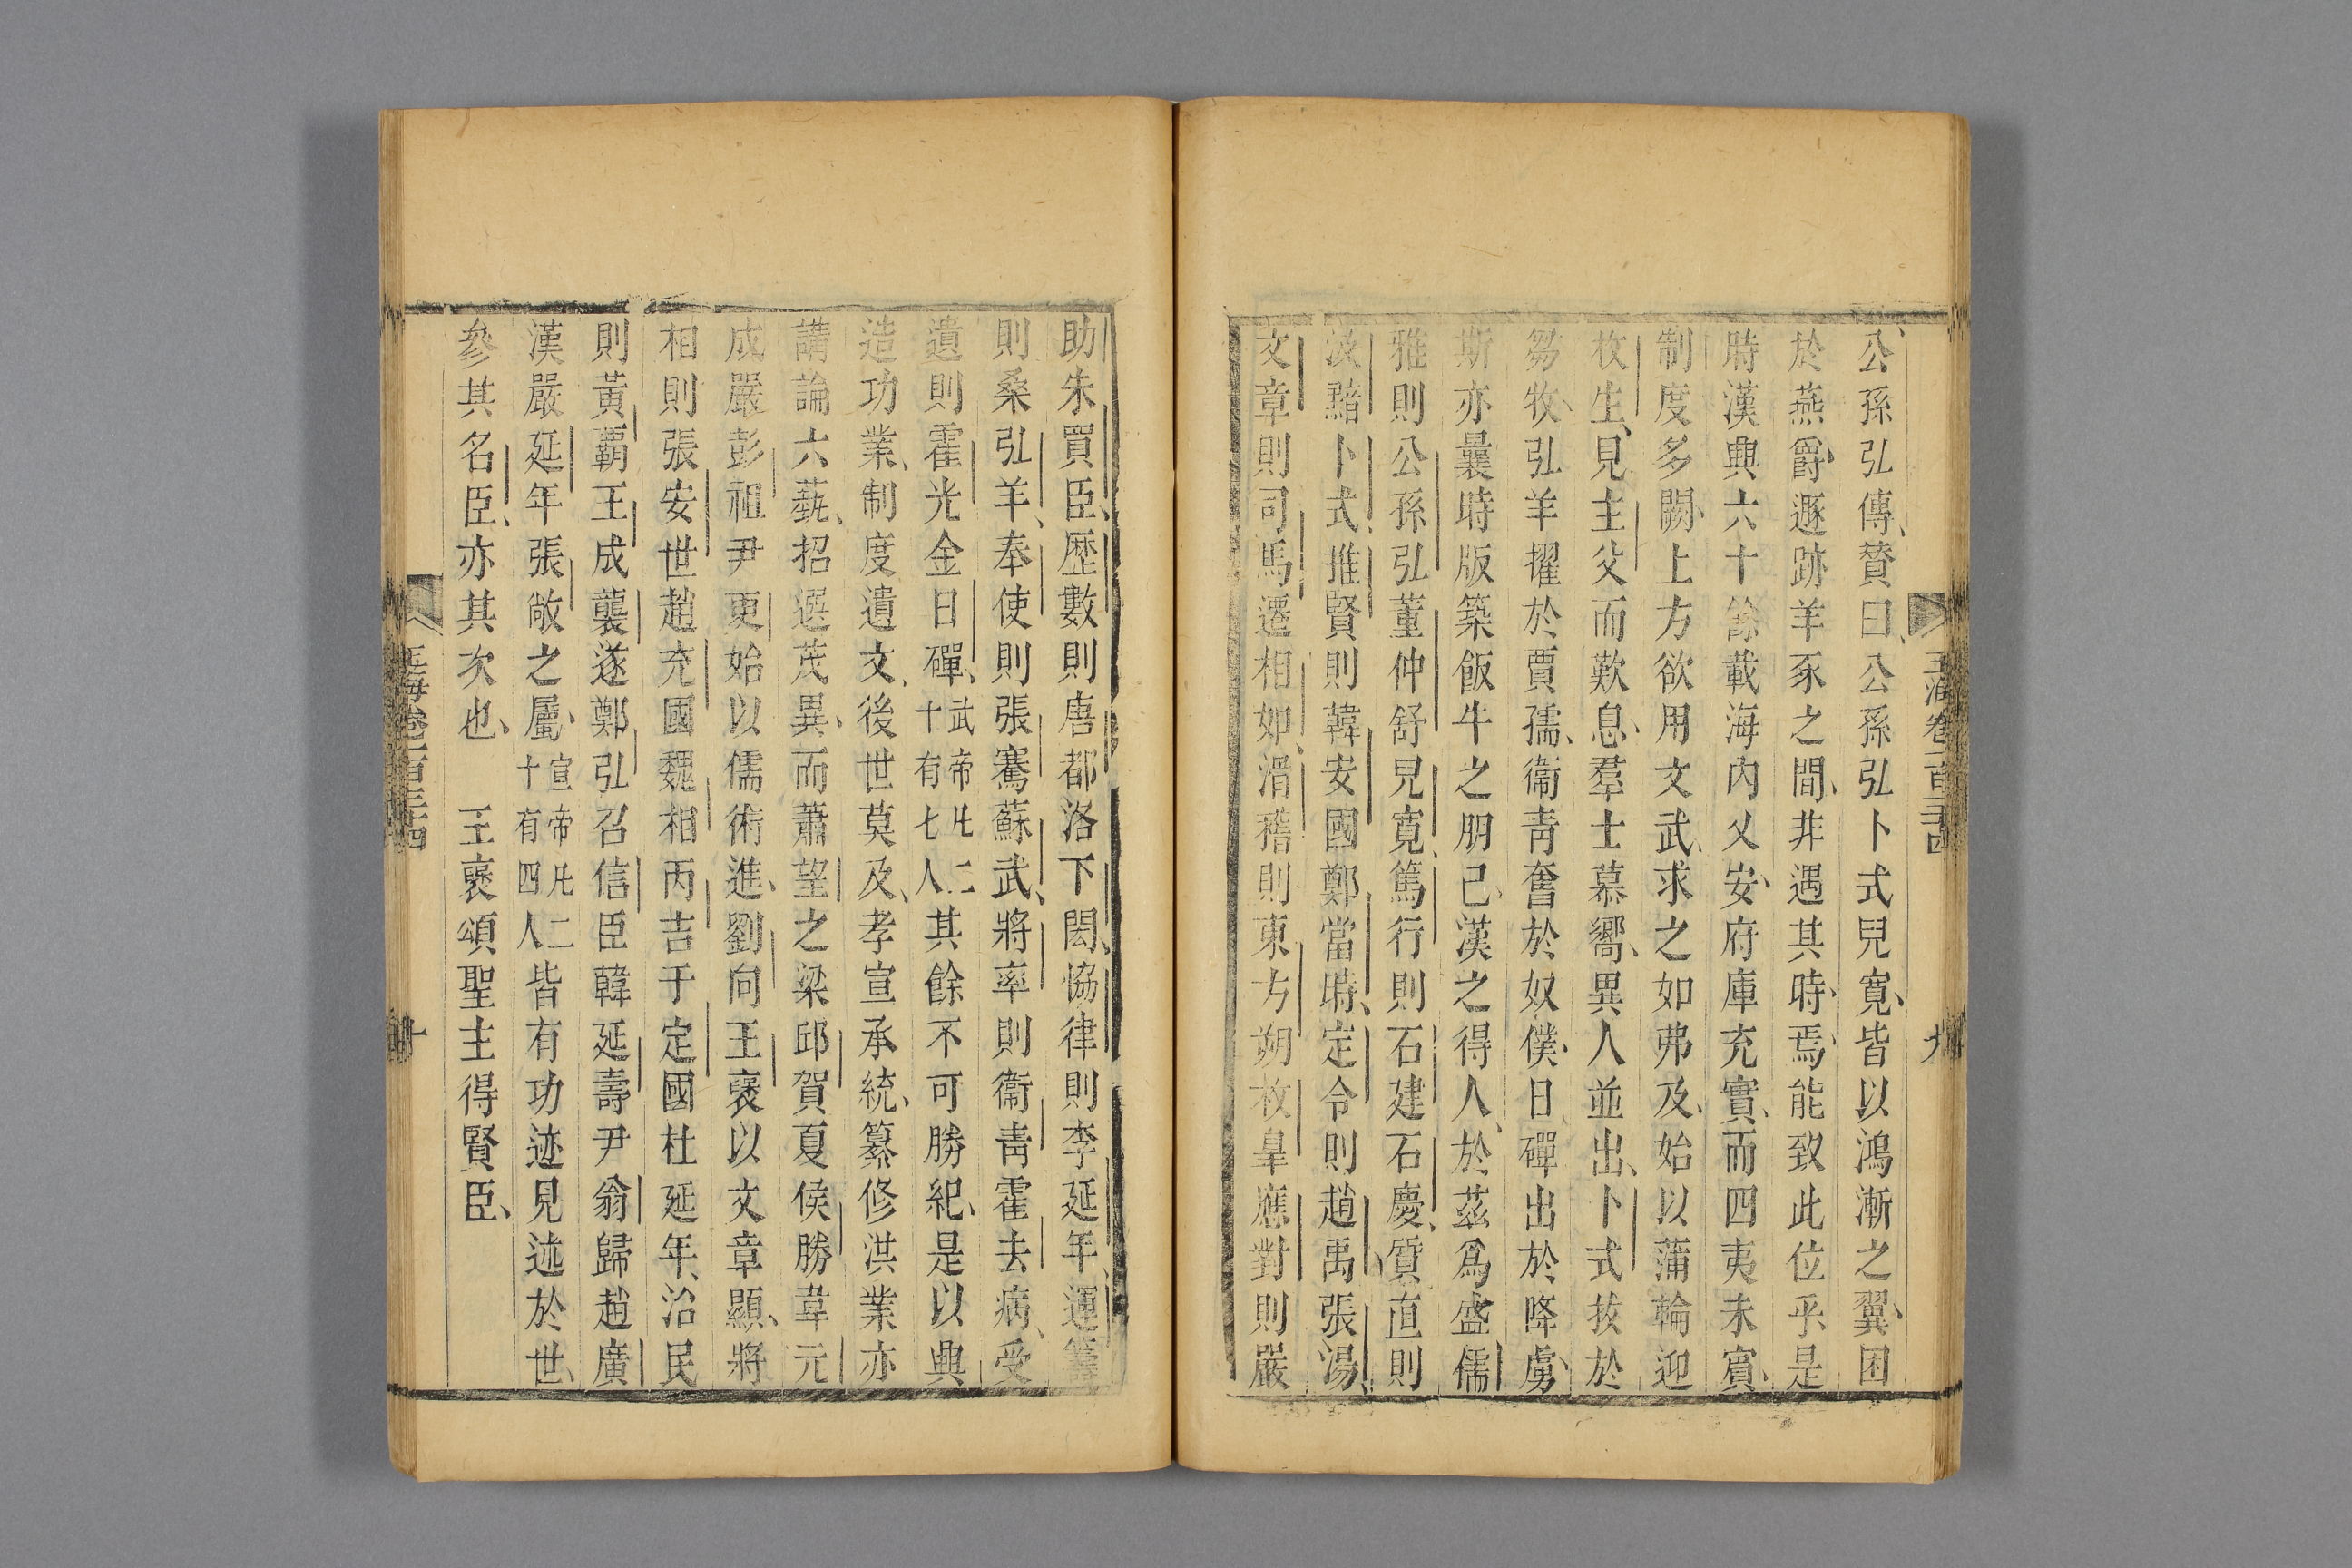 玉海卷一百三十四
九
公孫弘傳贊曰公孫弘卜式兒寬皆以鴻漸之翼困
於燕爵遯跡羊豕之間非遇其時焉能致此位乎是
時漢興六十餘載海內乂安府庫充實而四夷未賓
制度多闕上方欲用文武求之如弗及始以蒲輪迎
枚生見主父而歎息羣士慕嚮異人並出卜式拔於
芻牧弘羊擢於賈孺衞靑奮於奴僕日磾出於降虜
斯亦曩時版築飯牛之朋已漢之得人於茲爲盛儒
雅則公孫弘董仲舒兒寬篤行則石建石慶質直則
汲黯卜式推賢則韓安國鄭當時定令則趙禹張湯
文章則司馬遷相如滑稽則東方朔枚皐應對則嚴
助朱買臣歷數則唐都洛下閎協律則李延年運籌
則桑弘羊奉使則張騫蘇武將率則衞靑霍去病受
遺則霍光金日磾武帝凡二十有七人其餘不可勝紀是以興
造功業制度遺文後世莫及孝宣承統纂修洪業亦
講論六蓺招選茂異而蕭望之梁邱賀夏侯勝韋元
成嚴彭祖尹更始以儒術進劉向王襃以文章顯將
相則張安世趙充國魏相丙吉于定國杜延年治民
則黃霸王成龔遂鄭弘召信臣韓延壽尹翁歸趙廣
漢嚴延年張敞之屬宣帝凡二十有四人皆有功迹見述於世
參其名臣亦其次也　王襃頌聖主得賢臣
玉海卷一百三十四
十